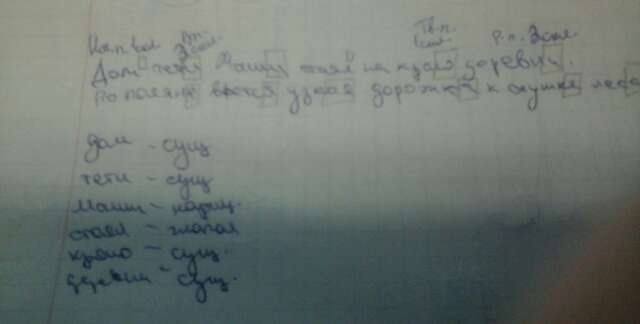 Им.п. 2скл. Рп. 2скл. Тв.п. 1скл. Р.п. 3скл.
Дом тети Маши стоял на краю деревни.
По поляне вьется узкая дорожка к опушке леса
дом - сущ
тети - сущ
Маши - сущ.
стоял - глагол
краю - сущ.
деревни - сущ.